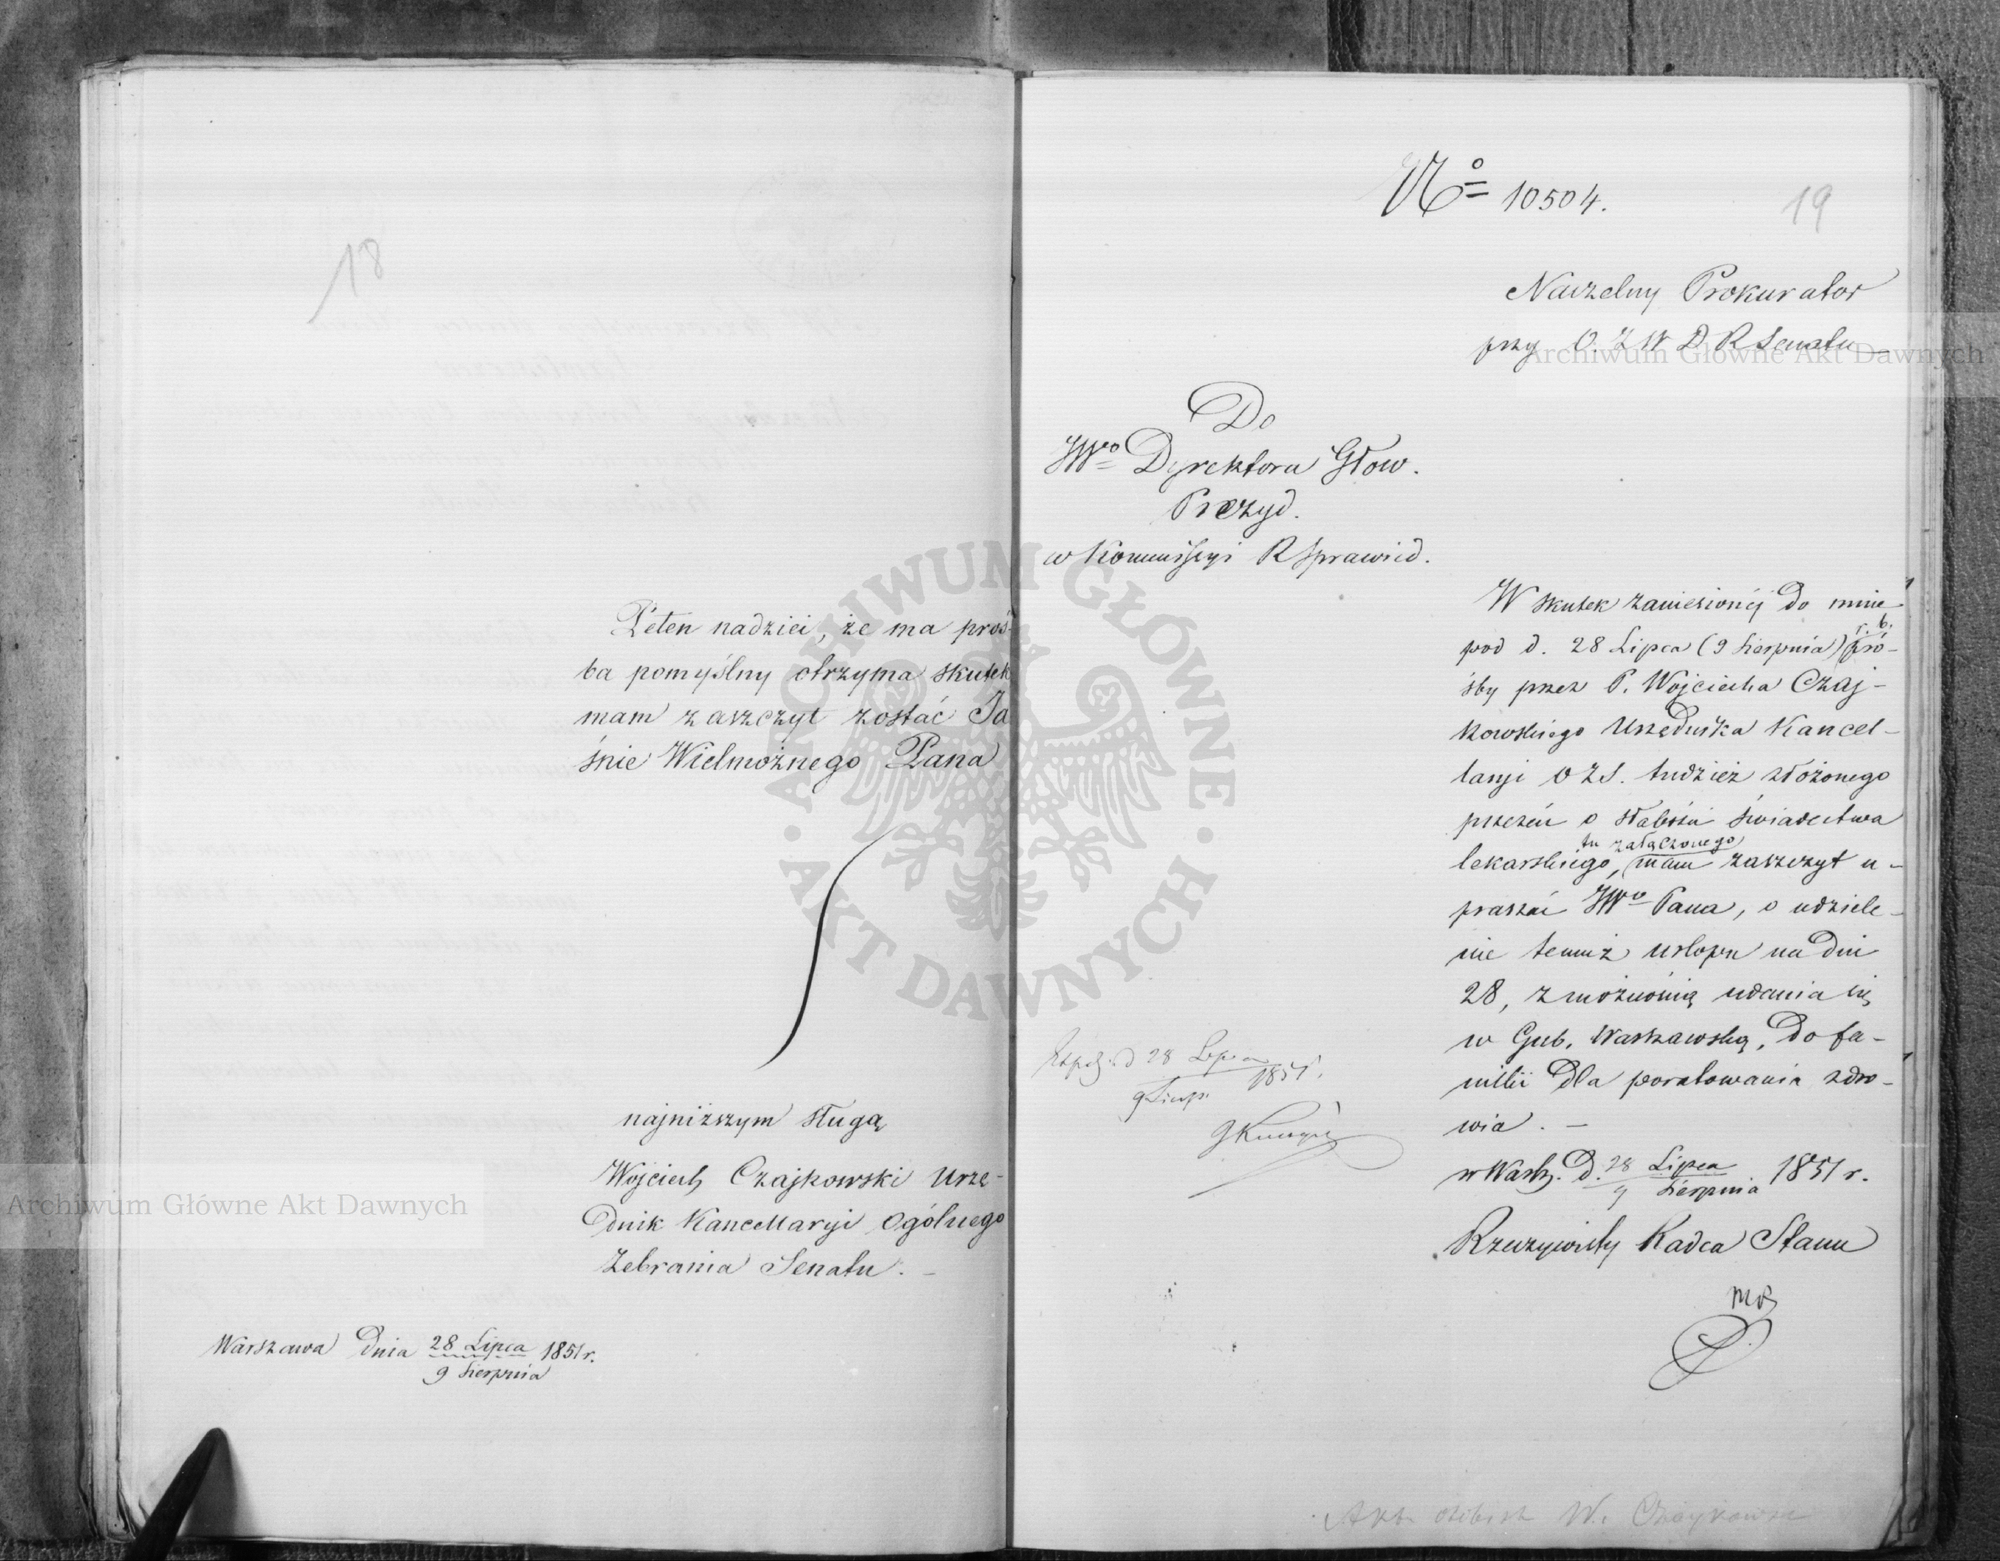 18
Pełen nadziei, że ma proś-
ba pomyślny otrzyma skutek
mam zaszczyt zostać Ja
śnie Wielmożnego Pana
najniższym sługą
Wojciech Czajkowski Urzę-
dnik Kancellaryi Ogólnego
Zebrania Senatu. -
Warszawa dnia 28 Lipca 1851 r.
9 Sierpnia
No 10504.
19
Naczelny Prokurator
przy O. Z W D R Senatu
Do
JWo Dyrektora Głow.
Prezyd.
w Kommissyi R Sprawied.
W skutek zaniesionéj do mnie
pod d. 28 Lipca (9 Sierpnia) r. b. pró-
śby przez P. Wojciecha Czaj-
kowskiego Urzędnika Kancel-
laryi O Z S. tudzież złożonego
przezeń o słabości świadectwa
lekarskiego, tu załączonego mam zaszczyt u-
praszać JWo Pana, o udziele-
nie temuż urlopu na dni
28, z możnością udania się
w Gub. Warszawską, do fa-
milii dla poratowania zdro-
wia. -
w Warsz. d. 28 Lipca 1851 r.
9 Sierpnia
Rzeczywisty Radca Stanu
28 Lipca 1851.
9 Sierp.
Akta osobiste W. Czajkowski
Archiwum Główne Akt Dawnych
Archiwum Główne Akt Dawnych
ARCHIWUM GŁÓWNE · AKT DAWNYCH ·